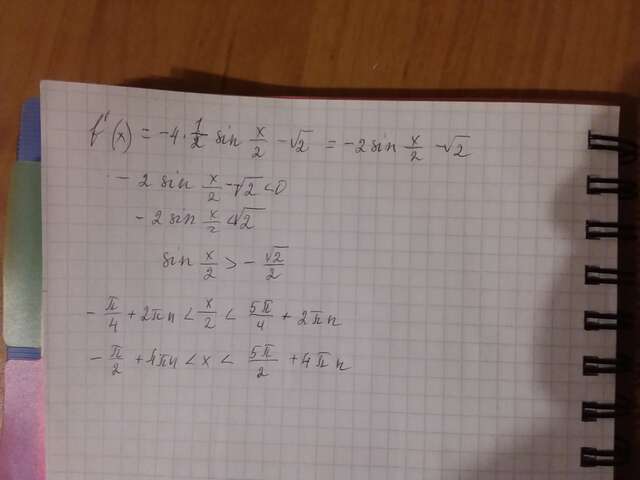 f'(x) = -4 · 1/2 sin x/2 - √2 = -2 sin x/2 - √2
- 2 sin x/2 - √2 < 0
- 2 sin x/2 < √2
sin x/2 > - √2/2
- π/4 + 2πn < x/2 < 5π/4 + 2πn
- π/2 + 4πn < x < 5π/2 + 4πn